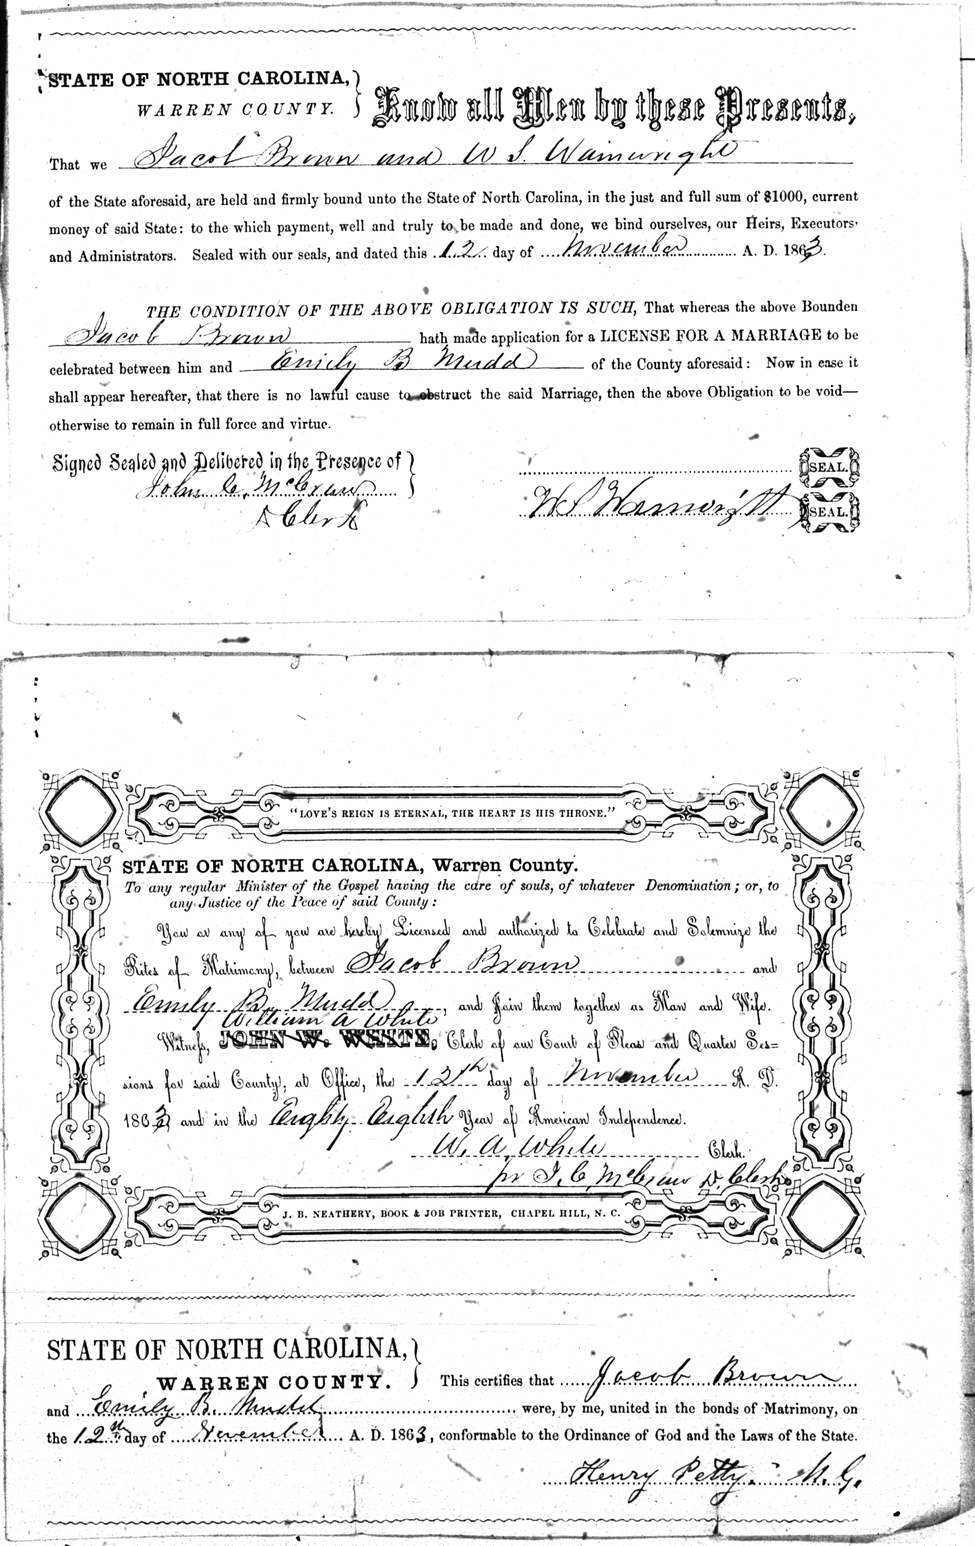 STATE OF NORTH CAROLINA,
WARREN COUNTY.
Know all Men by these Presents,
That we Jacob Brown and W S. Wainwright
of the State aforesaid, are held and firmly bound unto the State of North Carolina, in the just and full sum of $1000, current
money of said State: to the which payment, well and truly to be made and done, we bind ourselves, our Heirs, Executors
and Administrators. Sealed with our seals, and dated this 12 day of November A. D. 1863.
THE CONDITION OF THE ABOVE OBLIGATION IS SUCH, That whereas the above Bounden
Jacob Brown hath made application for a LICENSE FOR A MARRIAGE to be
celebrated between him and Emily B Mudd of the County aforesaid: Now in case it
shall appear hereafter, that there is no lawful cause to obstruct the said Marriage, then the above Obligation to be void—
otherwise to remain in full force and virtue.
Signed Sealed and Delivered in the Presence of
SEAL.
John C. McCraw
D Clerk
W S Wainwright
SEAL.
"LOVE'S REIGN IS ETERNAL, THE HEART IS HIS THRONE."
STATE OF NORTH CAROLINA, Warren County.
To any regular Minister of the Gospel having the care of souls, of whatever Denomination; or, to
any Justice of the Peace of said County:
You or any of you are hereby Licensed and authorized to Celebrate and Solemnize the
Rites of Matrimony, between Jacob Brown and
Emily B. Mudd, and Join them together as Man and Wife.
William A White
Witness, JOHN W. WHITE, Clerk of our Court of Pleas and Quarter Ses=
sions for said County, at Office, the 12th day of November A. D.
1863 and in the Eighty Eighth Year of American Independence.
W. A. White Clerk.
pr J. C. McCraw D. Clerk
J. B. NEATHERY, BOOK & JOB PRINTER, CHAPEL HILL, N. C.
STATE OF NORTH CAROLINA,
WARREN COUNTY.
This certifies that Jacob Brown
and Emily B. Mudd were, by me, united in the bonds of Matrimony, on
the 12th day of November A. D. 1863, conformable to the Ordinance of God and the Laws of the State.
Henry Petty. M. G.